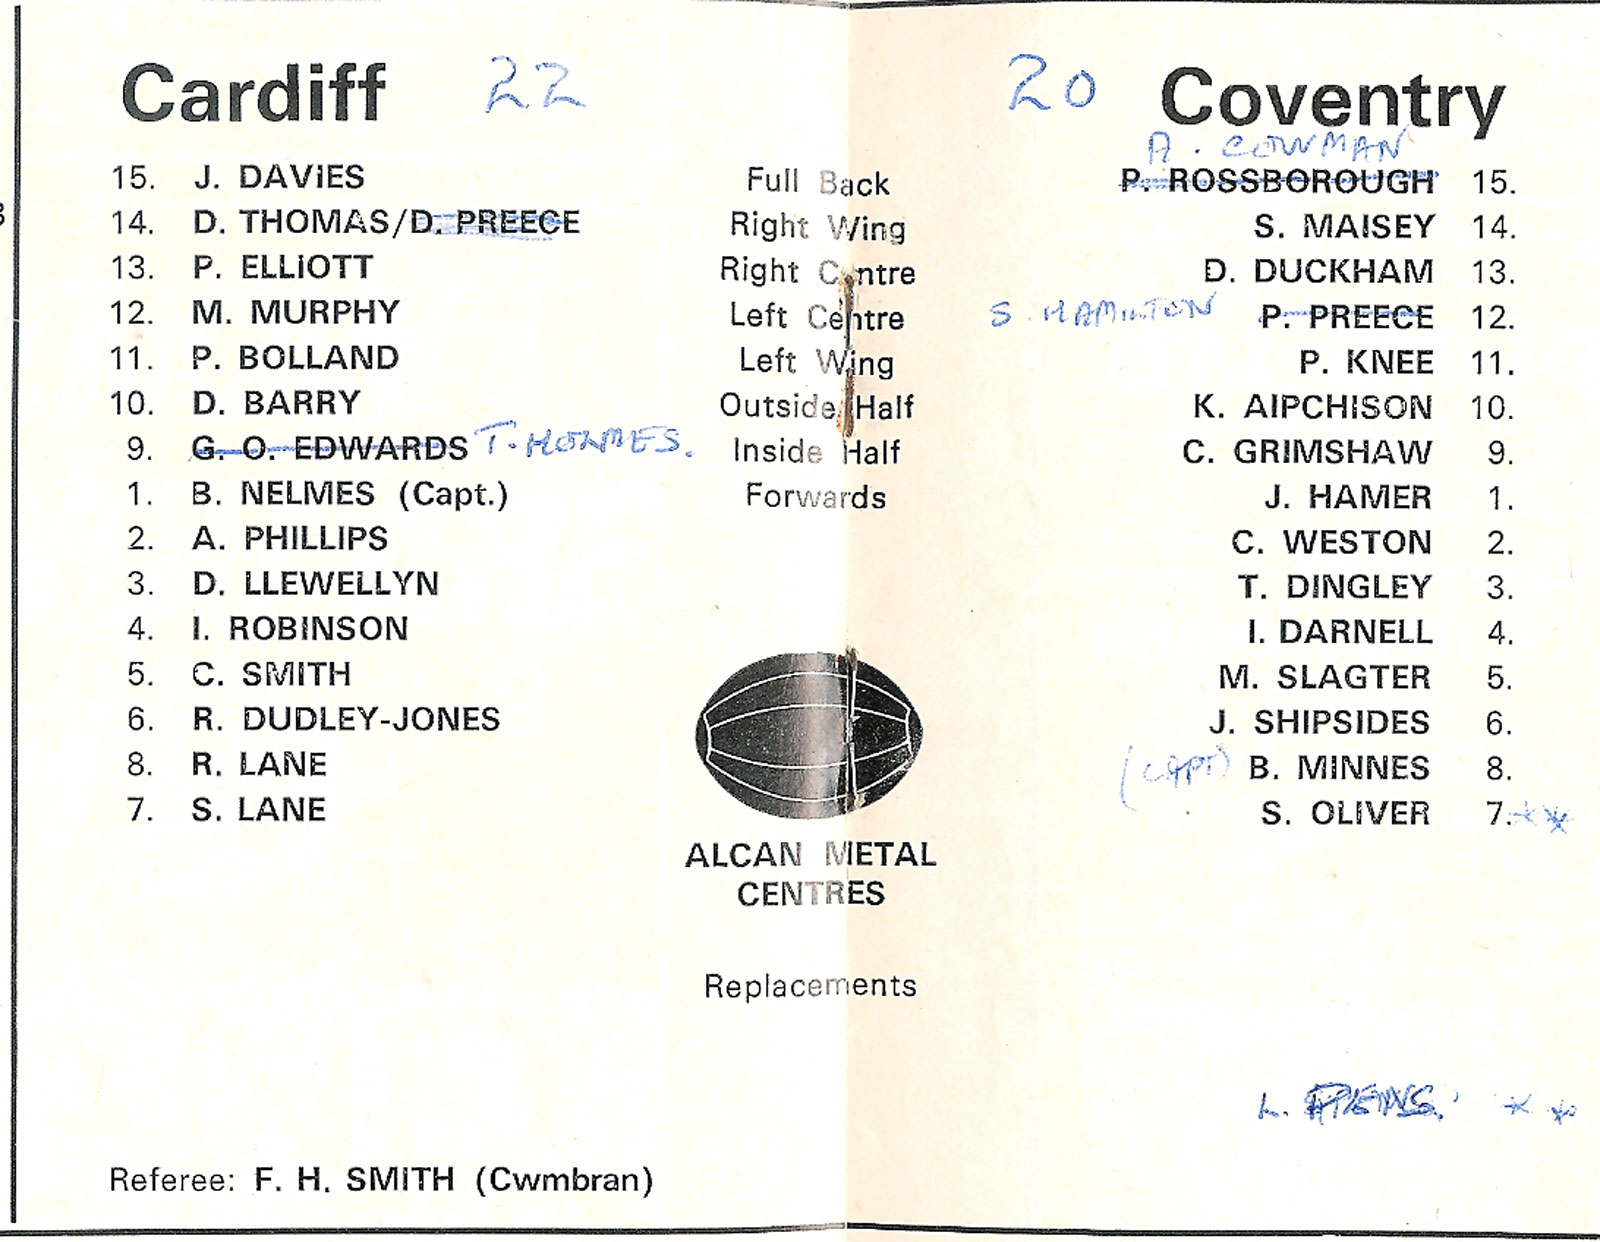 Cardiff 22
15. J. DAViES
14. D. THOMAS/D. PREECE
13. P. ELLiOTT
12. M. MURPHY
11. P. BOLLAND
10. D. BARRY
9. G. O. EDWARDS T. HOLMES.
1. B. NELMES (Capt.)
2. A. PHILLIPS
3. D. LLEWELLYN
4. I. ROBINSON
5. C. SMITH
6. R. DUDLEY-JONES
8. R. LANE
7. S. LANE
Full Back
Right Wing
Right Centre
Left Centre
Left Wing
Outside Half
Inside Half
Forwards
ALCAN METAL
CENTRES
Replacements
20 Coventry
A. COWMAN
P. ROSSBOROUGH 15.
S. MAISEY 14.
D. DUCKHAM 13.
S. HAMILTON P. PREECE 12.
P. KNEE 11.
K. AIPCHISON 10.
C. GRIMSHAW 9.
J. HAMER 1.
C. WESTON 2.
T. DINGLEY 3.
I. DARNELL 4.
M. SLAGTER 5.
J. SHIPSIDES 6.
(CAPT) B. MINNES 8.
S. OLIVER 7. **
L. **
Referee: F. H. SMITH (Cwmbran)